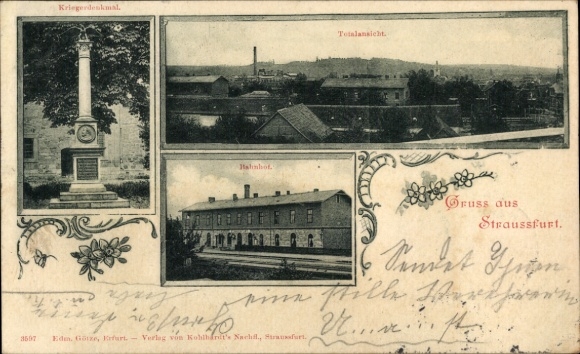 Kriegerdenkmal.
Totalansicht.
Bahnhof.
Gruss aus
Straussfurt.
Sendet Ihnen
eine stille Verehrerin
U... a... st...
3597 Edm. Götze, Erfurt. — Verlag von Kuhlhardt's Nachfl., Straussfurt.